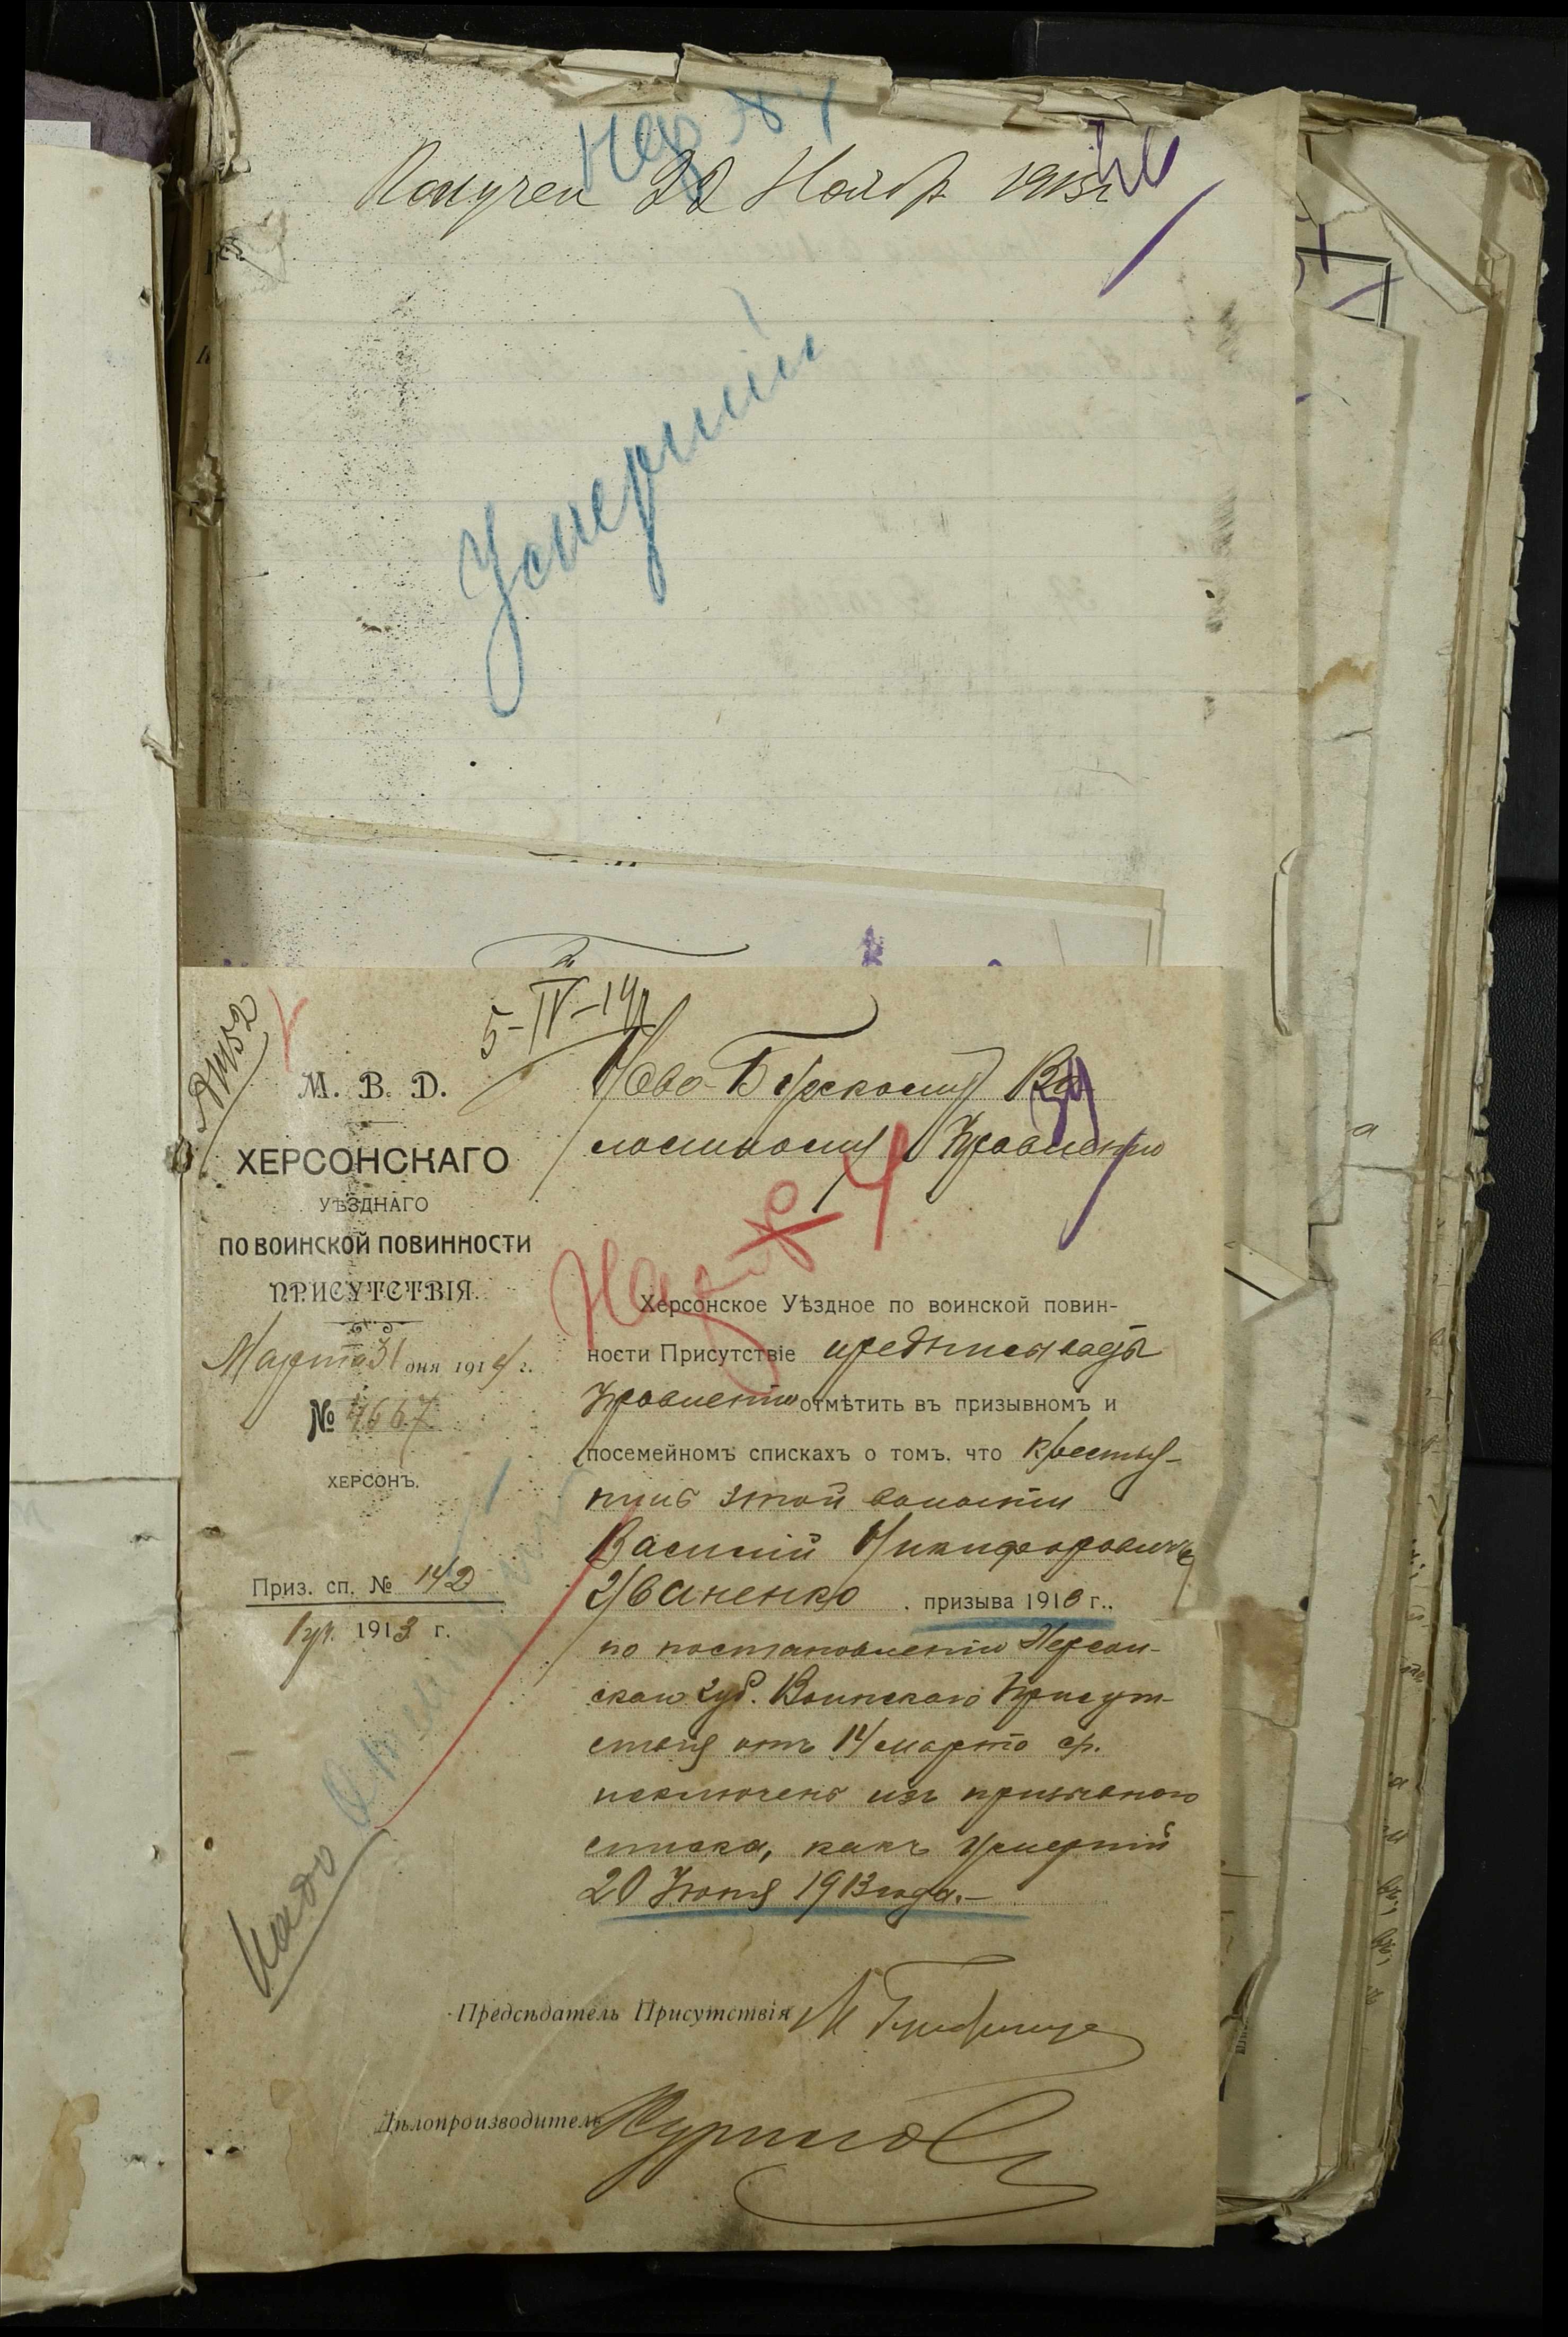 Получен 22 Ноябр 1913г
Умерший
5-IV-14
М. В. Д.
ХЕРСОНСКАГО
УѢЗДНАГО
ПО ВОИНСКОЙ ПОВИННОСТИ
ПРИСУТСТВІЯ.
Марта 31 дня 1914 г.
№ 4667
ХЕРСОНЪ.
Приз. сп. № 142
1 уч. 1913 г.
Ново-
лостному Правленію
Херсонское Уѣздное по воинской повин-
ности Присутствіе предписываетъ
Правленію отмѣтить въ призывномъ и
посемейномъ спискахъ о томъ, что крестья-
нинъ этой волости
Василій Никифоровичъ
Иваненко . призыва 1913 г.,
по постановленію Херсон-
скаго Губ. Воинскаго Присут-
ствія отъ 14 марта с/г.
исключенъ изъ призывного
списка, какъ умершій
20 Іюня 1913 года.-
Надо
Предсѣдатель Присутствія
Дѣлопроизводитель